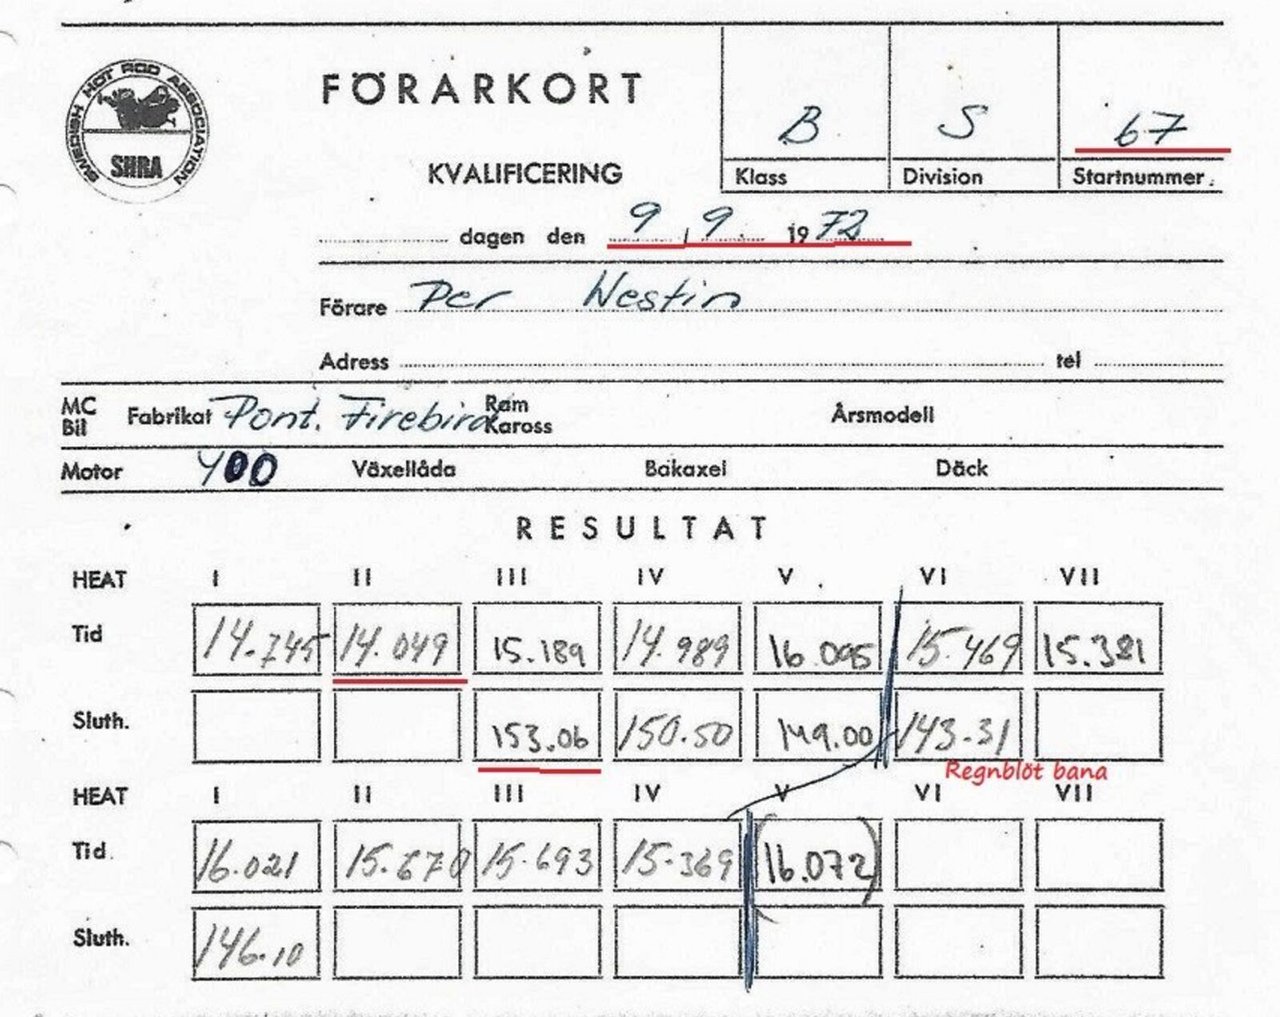 SWEDISH HOT ROD ASSOCIATION
SHRA
FÖRARKORT
KVALIFICERING
B S 67
Klass Division Startnummer
dagen den 9 9 1972
Förare Per Westin
Adress tel
MC Bil Fabrikat Pont. Firebird Ram Kaross Årsmodell
Motor 400 Växellåda Bakaxel Däck
RESULTAT
HEAT I II III IV V VI VII
Tid 14.745 14.049 15.189 14.989 16.095 15.469 15.381
Sluth. 153.06 150.50 149.00 143.31
Regnblöt bana
HEAT I II III IV V VI VII
Tid 16.021 15.670 15.693 15.369 (16.072)
Sluth. 146.10